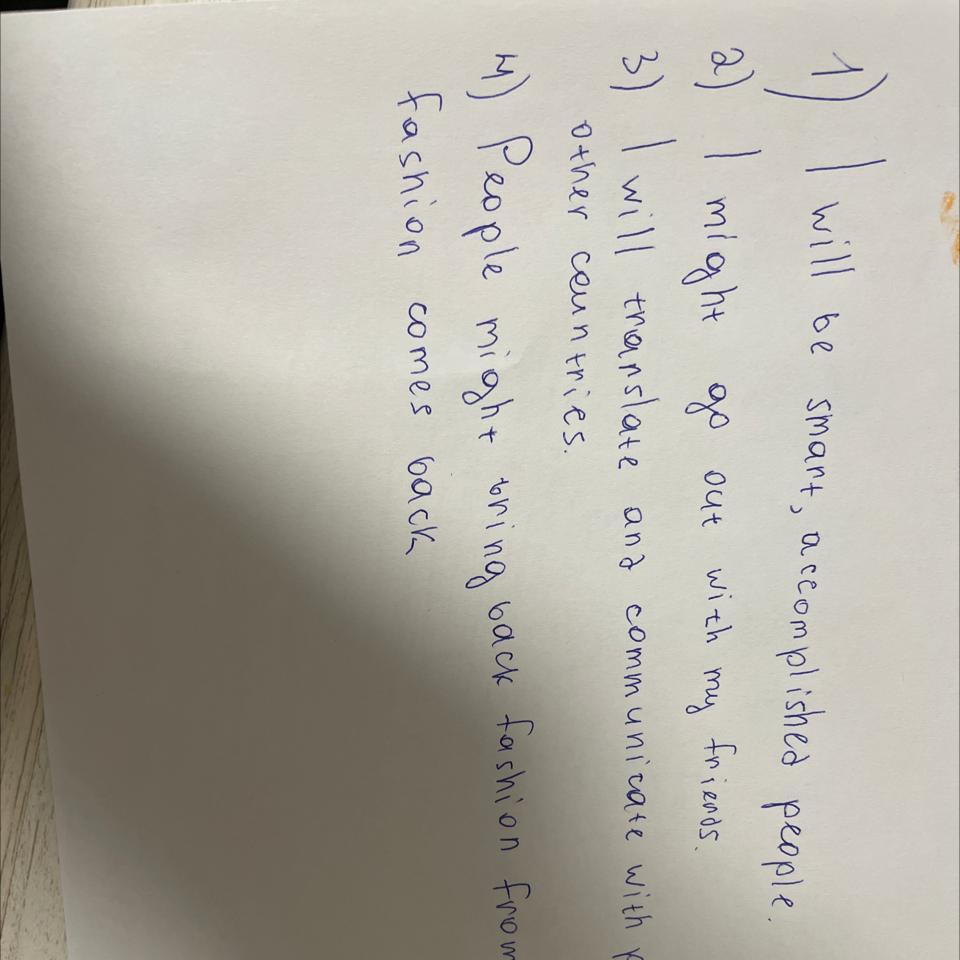 1) I will be smart, accomplished people.
2) I might go out with my friends.
3) I will translate and communicate with
other countries.
4) People might bring back fashion from
fashion comes back